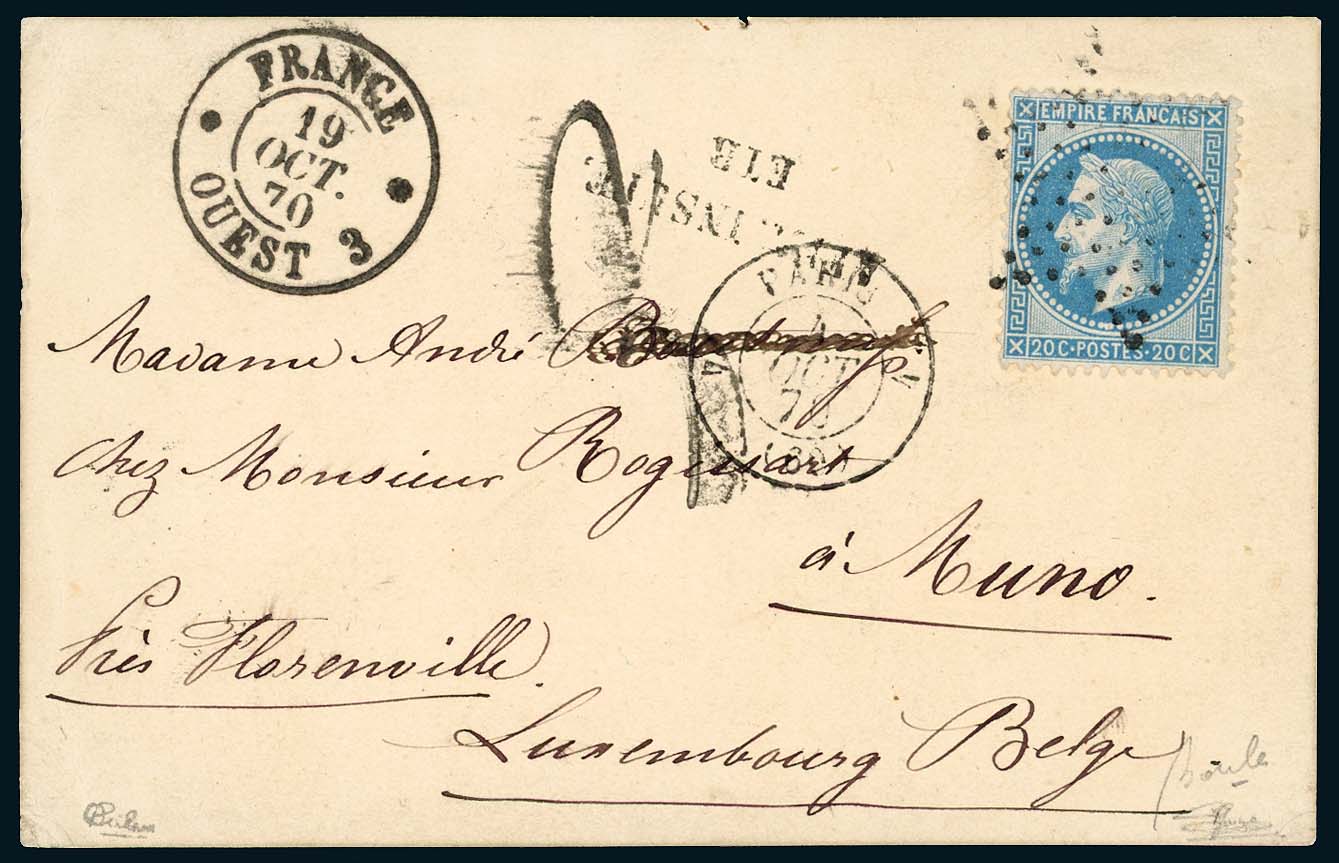 FRANCE
19
OCT.
70
OUEST 3
EMPIRE FRANCAIS
20C·POSTES·20C
PARIS
OCT
Madame André
chez Monsieur
à Muno.
Près Florenville.
Luxembourg Belge